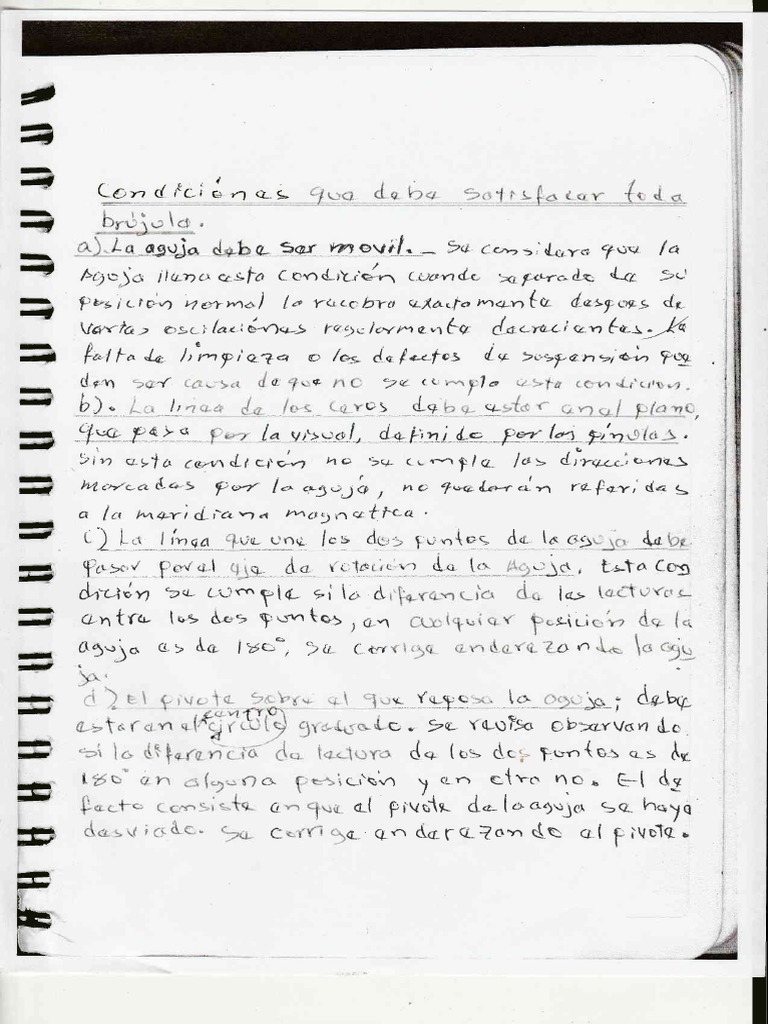 Condiciónes que debe satisfacer toda
brújula.
a). La aguja debe ser movil. _ Se considera que la
aguja llena esta condición cuando separada de su
posición normal la recobra exactamente despues de
varias oscilaciónes regularmente decrecientes. La
falta de limpieza o los defectos de suspensión que
den ser causa de que no se cumpla esta condición.
b). La linea de los ceros debe estar en el plano,
que pasa por la visual, definido por las pínulas.
Sin esta condición no se cumple las direcciones
marcadas por la aguja, no quedarán referidas
a la meridiana magnetica.
c) La línea que une los dos puntos de la aguja debe
pasar por el eje de rotación de la Aguja. Esta con
dición se cumple si la diferencia de las lecturas
entre los dos puntos, en cualquier posición de la
aguja es de 180°, se corrige enderezando la agu
ja.
d) El pivote sobre el que reposa la aguja; debe
estar en el centro círculo graduado. Se revisa observando
si la diferencia de lectura de los dos puntos es de
180° en alguna posición y en otra no. El de
fecto consiste en que el pivote de la aguja se haya
desviado. Se corrige enderezando el pivote.